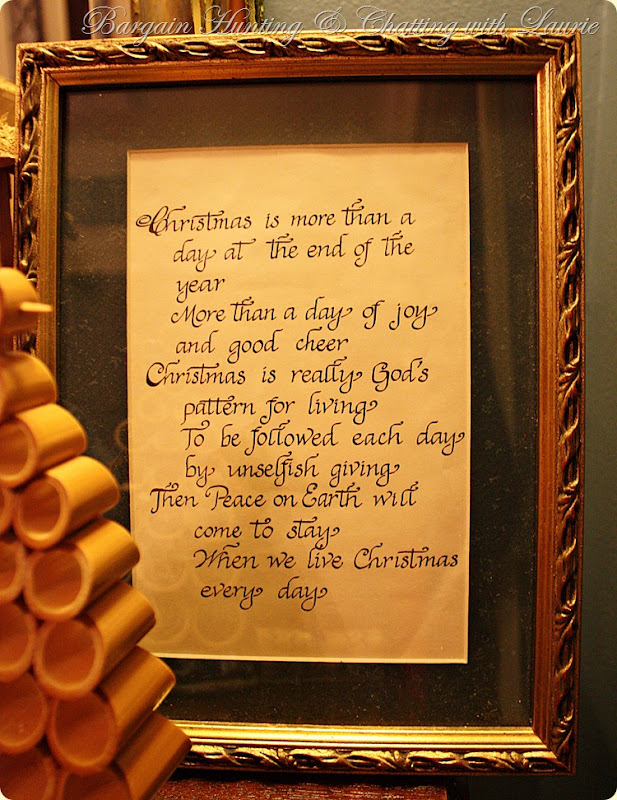 Bargain Hunting & Chatting with Laurie
Christmas is more than a
day at the end of the
year
More than a day of joy
and good cheer
Christmas is really God's
pattern for living
To be followed each day
by unselfish giving
Then Peace on Earth will
come to stay
When we live Christmas
every day